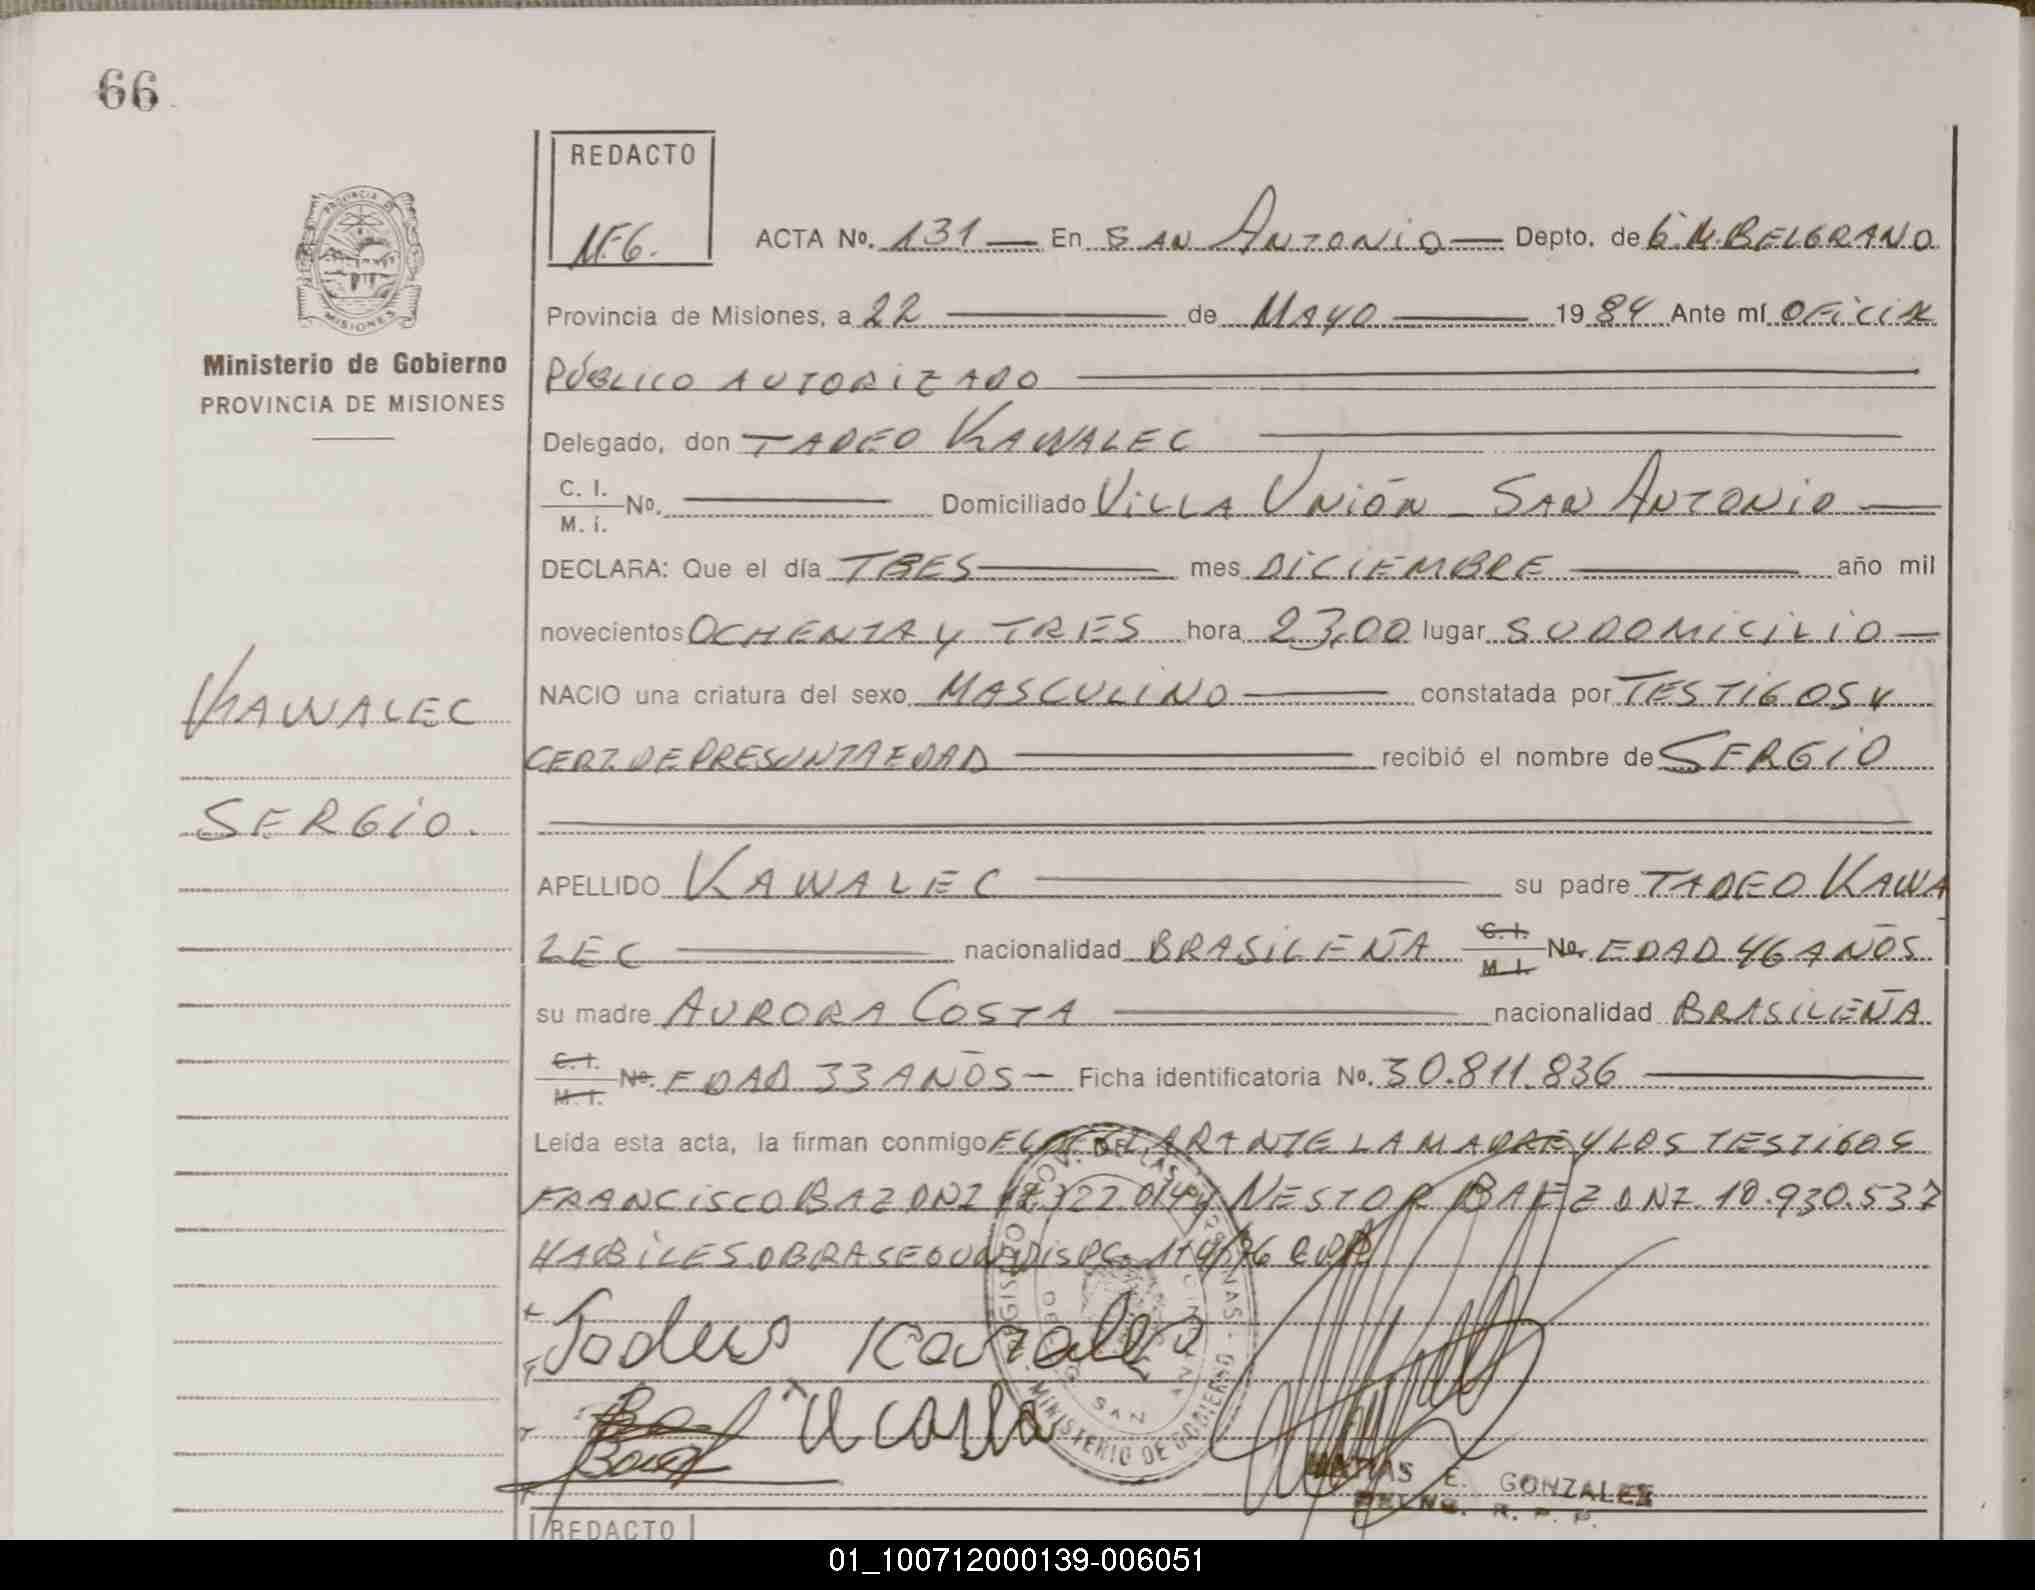 66
REDACTO
M.G.
ACTA No. 131 — En SAN ANTONIO — Depto. de G. M. BELGRANO
Provincia de Misiones, a 22 — de MAYO — 1984 Ante mí OFICIAL
PÚBLICO AUTORIZADO —
Delegado, don TADEO KAWALEC —
C. I. / M. I. No. — Domiciliado VILLA UNIÓN - SAN ANTONIO —
DECLARA: Que el día TRES — mes DICIEMBRE — año mil
novecientos OCHENTA Y TRES hora 23,00 lugar SU DOMICILIO —
NACIO una criatura del sexo MASCULINO — constatada por TESTIGOS Y
CERT. DE PRESUNTA EDAD — recibió el nombre de SERGIO
APELLIDO KAWALEC — su padre TADEO KAWA
LEC — nacionalidad BRASILEÑA C. I. / M. I. No. EDAD 46 AÑOS
su madre AURORA COSTA — nacionalidad BRASILEÑA
C. I. / M. I. No. EDAD 33 AÑOS — Ficha identificatoria No. 30.811.836 —
Leída esta acta, la firman conmigo EL DECLARANTE LA MADRE Y LOS TESTIGOS
FRANCISCO BAZ DNI Y NESTOR BAEZ DNI. 18.930.537
HABILES. OBRA SEGUN DISPC. 114/76
MINISTERIO DE GOBIERNO
SAN
E. GONZALES
R. P. P.
PROVINCIA DE
MISIONES
Ministerio de Gobierno
PROVINCIA DE MISIONES
KAWALEC
SERGIO.
REDACTO
01_100712000139-006051